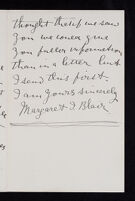 thought that if we saw
you we could give
you fuller information
than in a letter but
I send this first.
I am yours sincerely
Margaret I. Blair